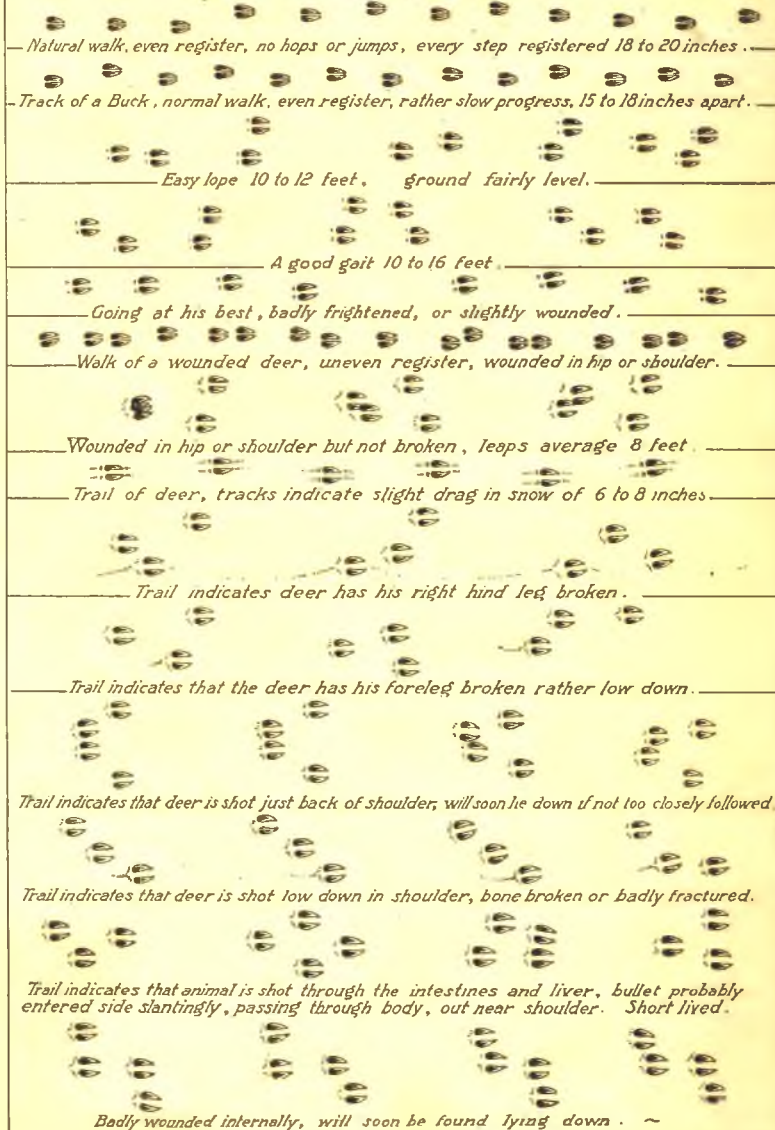 Natural walk, even register, no hops or jumps, every step registered 18 to 20 inches.
Track of a Buck, normal walk, even register, rather slow progress, 15 to 18 inches apart.
Easy lope 10 to 12 feet, ground fairly level.
A good gait 10 to 16 feet.
Going at his best, badly frightened, or slightly wounded.
Walk of a wounded deer, uneven register, wounded in hip or shoulder.
Wounded in hip or shoulder but not broken, leaps average 8 feet
Trail of deer, tracks indicate slight drag in snow of 6 to 8 inches
Trail indicates deer has his right hind leg broken.
Trail indicates that the deer has his foreleg broken rather low down.
Trail indicates that deer is shot just back of shoulder, will soon lie down if not too closely followed.
Trail indicates that deer is shot low down in shoulder, bone broken or badly fractured.
Trail indicates that animal is shot through the intestines and liver, bullet probably
entered side slantingly, passing through body, out near shoulder. Short lived.
Badly wounded internally, will soon be found lying down. ~